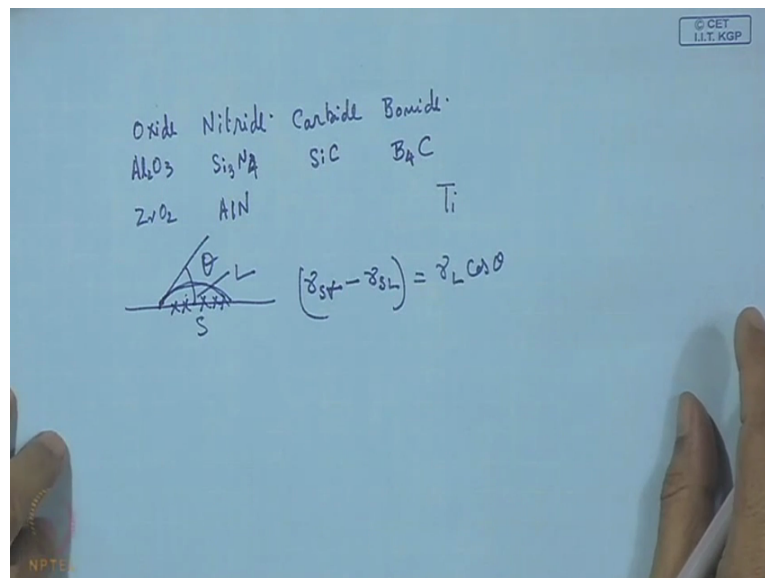 © CET
I.I.T. KGP
Oxide Nitride Carbide Boride
Al₂O₃ Si₃N₄ SiC B₄C
ZrO₂ AlN Ti
θ L (γ_S - γ_SL) = γ_L cosθ
S
NPTEL